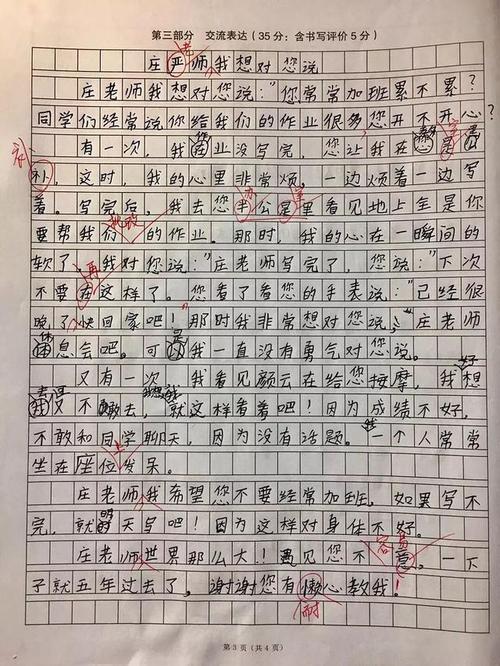 第三部分 交流表达（35分：含书写评价5分）
庄严师我想对您说
庄老师我想对您说：“您常常加班累不累？
同学们经常说您给我们的作业很多您开不开心？
有一次，我在业没写完，您让我在
补，这时，我的心里非常烦，一边烦着一边写
着。写完后，我去您半公是里看见地上全是你
要帮我们批改的作业。那时，我的心在一瞬间的
软了，我对您说：“庄老师写完了，您说：“下次
不要在这样了。您看了看您的手表说：“已经很
晚了快回家吧！那时我非常想对您说：庄老师
休息会吧。可是我一直没有勇气对您说。
又有一次，我看见颜云在给您按摩，我想
去没不敢去，就这样看着吧！因为成绩不好，
不敢和同学聊天，因为没有话题。一个人常常
坐在座位发呆。
庄老师我希望您不要经常加班，如果写不
完，就明天写吧！因为这样对身体不好。
庄老师世界那么大！遇见您不容易。一下
子就五年过去了，谢谢您有懒心教我！
耐
第3页（共4页）